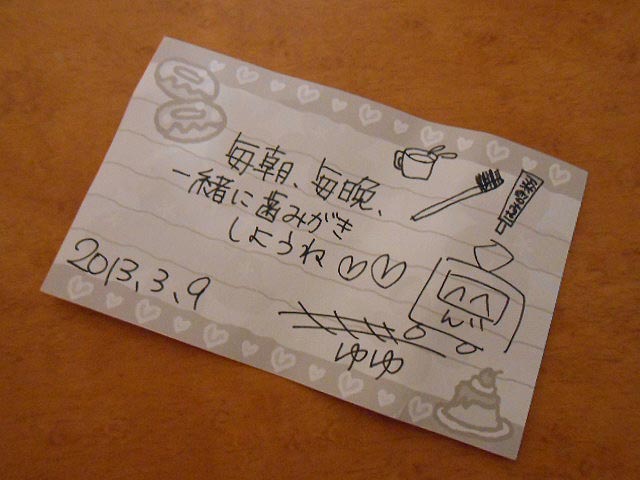 毎朝、毎晩、
一緒に歯みがき
しようね♡♡
2013.3.9
はみがき粉
ゆゆ